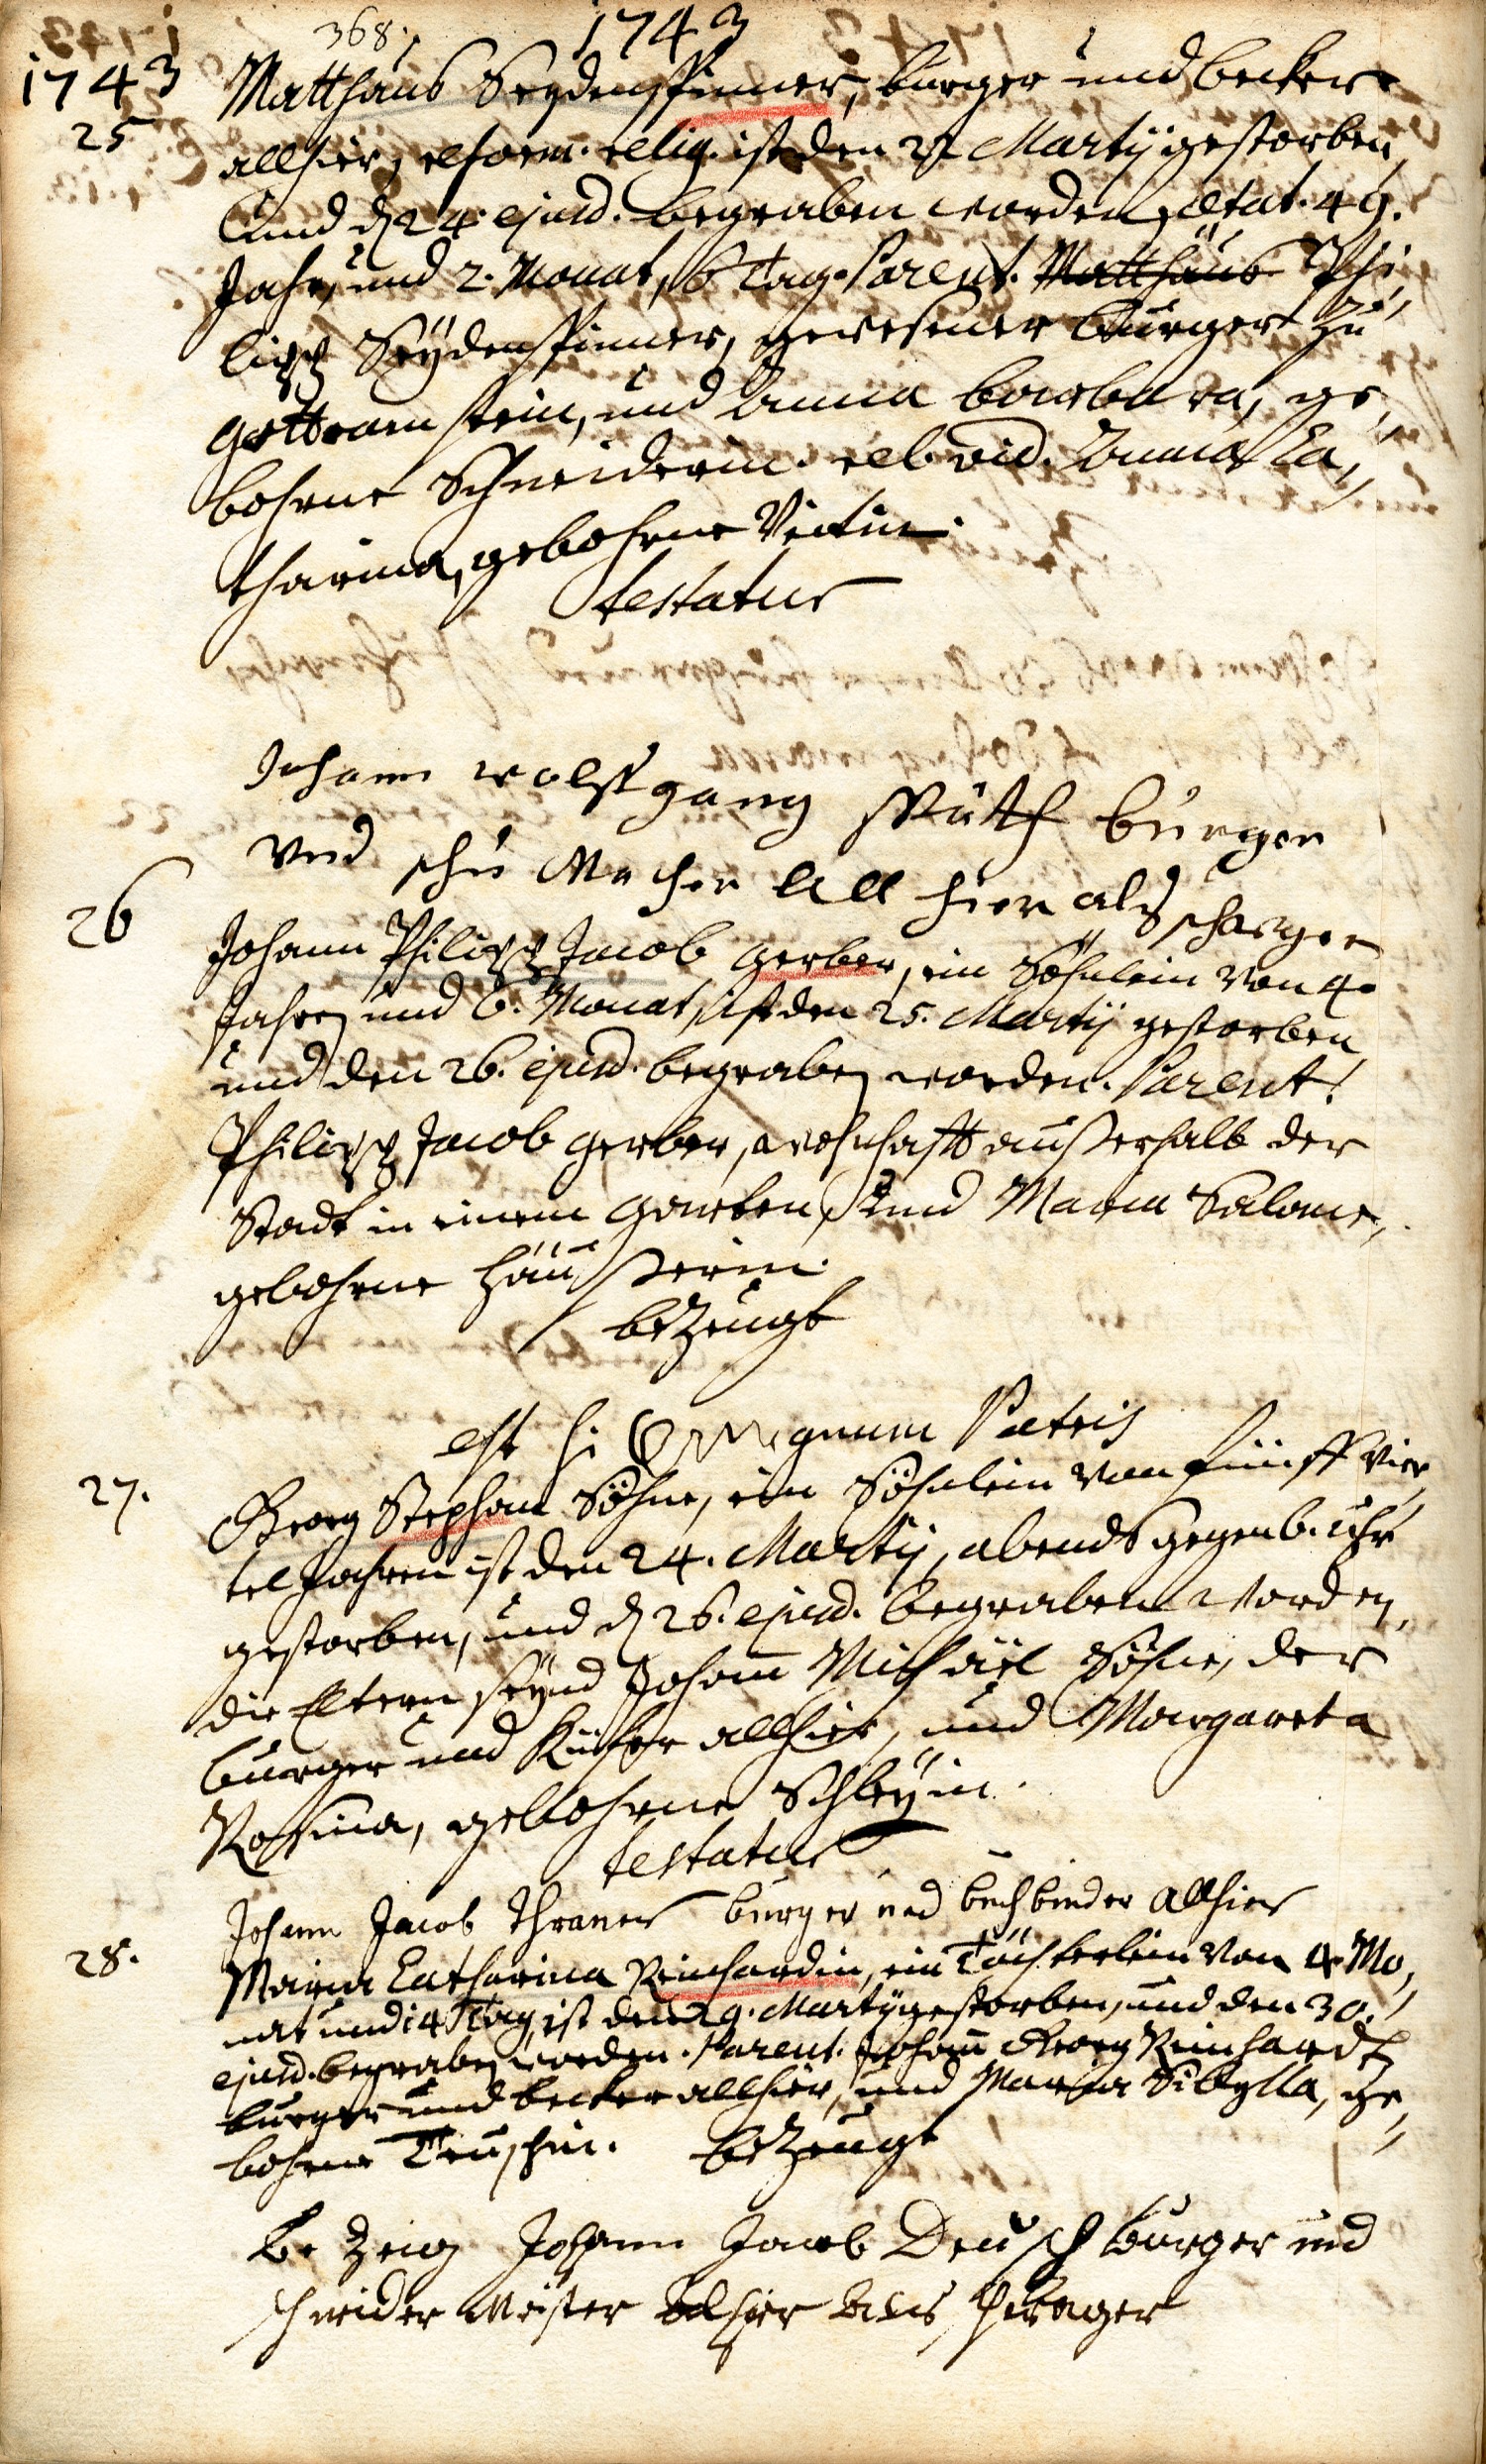 368.
1743
1743
25
Matthäus Seydenspinner, burger und becker
allhier, reform. relig. ist den 22 Martij gestorben,
und d. 24. ejusd. begraben worden, ætat. 49.
Jahr, und 2. Monat, 6 Tag. Parent. Matthäus Phi,,
lipp Seydenspinner, gewesener burger zu
Gottramstein, und Anna barbara, ge,,
bohrne Schneiderin. rel. vid. Anna Ca,,
tharina, gebohrne
testatur
Johann wolff gang burger
und schu Macher All hier als schwager
26
Johann Philipp Jacob Gerber, ein Söhnlein von 4.
Jahren und 6. Monat, ist den 25. Martij gestorben,
und den 26. ejusd. begraben worden. Parent.
Philipp Jacob Gerber, wohnhafft außerhalb der
Stadt in einem Garten, und Maria Salome,
gebohrne Häußerin.
bezeugt
est signum Patris
27.
Georg Stephan Söhne, ein Söhnlein von fünff vier,,
tel Jahren ist den 24. Martij, abends gegen 6. uhr
gestorben, und d. 26. ejusd. begraben worden,
die Eltern seynd Johann Michäel Söhne, der
burger und Küfer allhier, und Margareta
Rosina, gebohrne Schleyin.
testatur
Johann Jacob Thraner burger und buchbinder allhier
28.
Maria Catharina Reinhardin, ein Töchterlein von 4. Mo,,
nat und 14 Tag, ist den 29. Martij gestorben, und den 30.
ejusd. begraben worden. Parent. Johann Georg Reinhardt
burger und becker allhier, und Maria Sibylla, ge,,
bohrne Teuschin. bezeugt
Be zeig Johann Jacob Deusch burger und
schneider Meister alhier als schwager